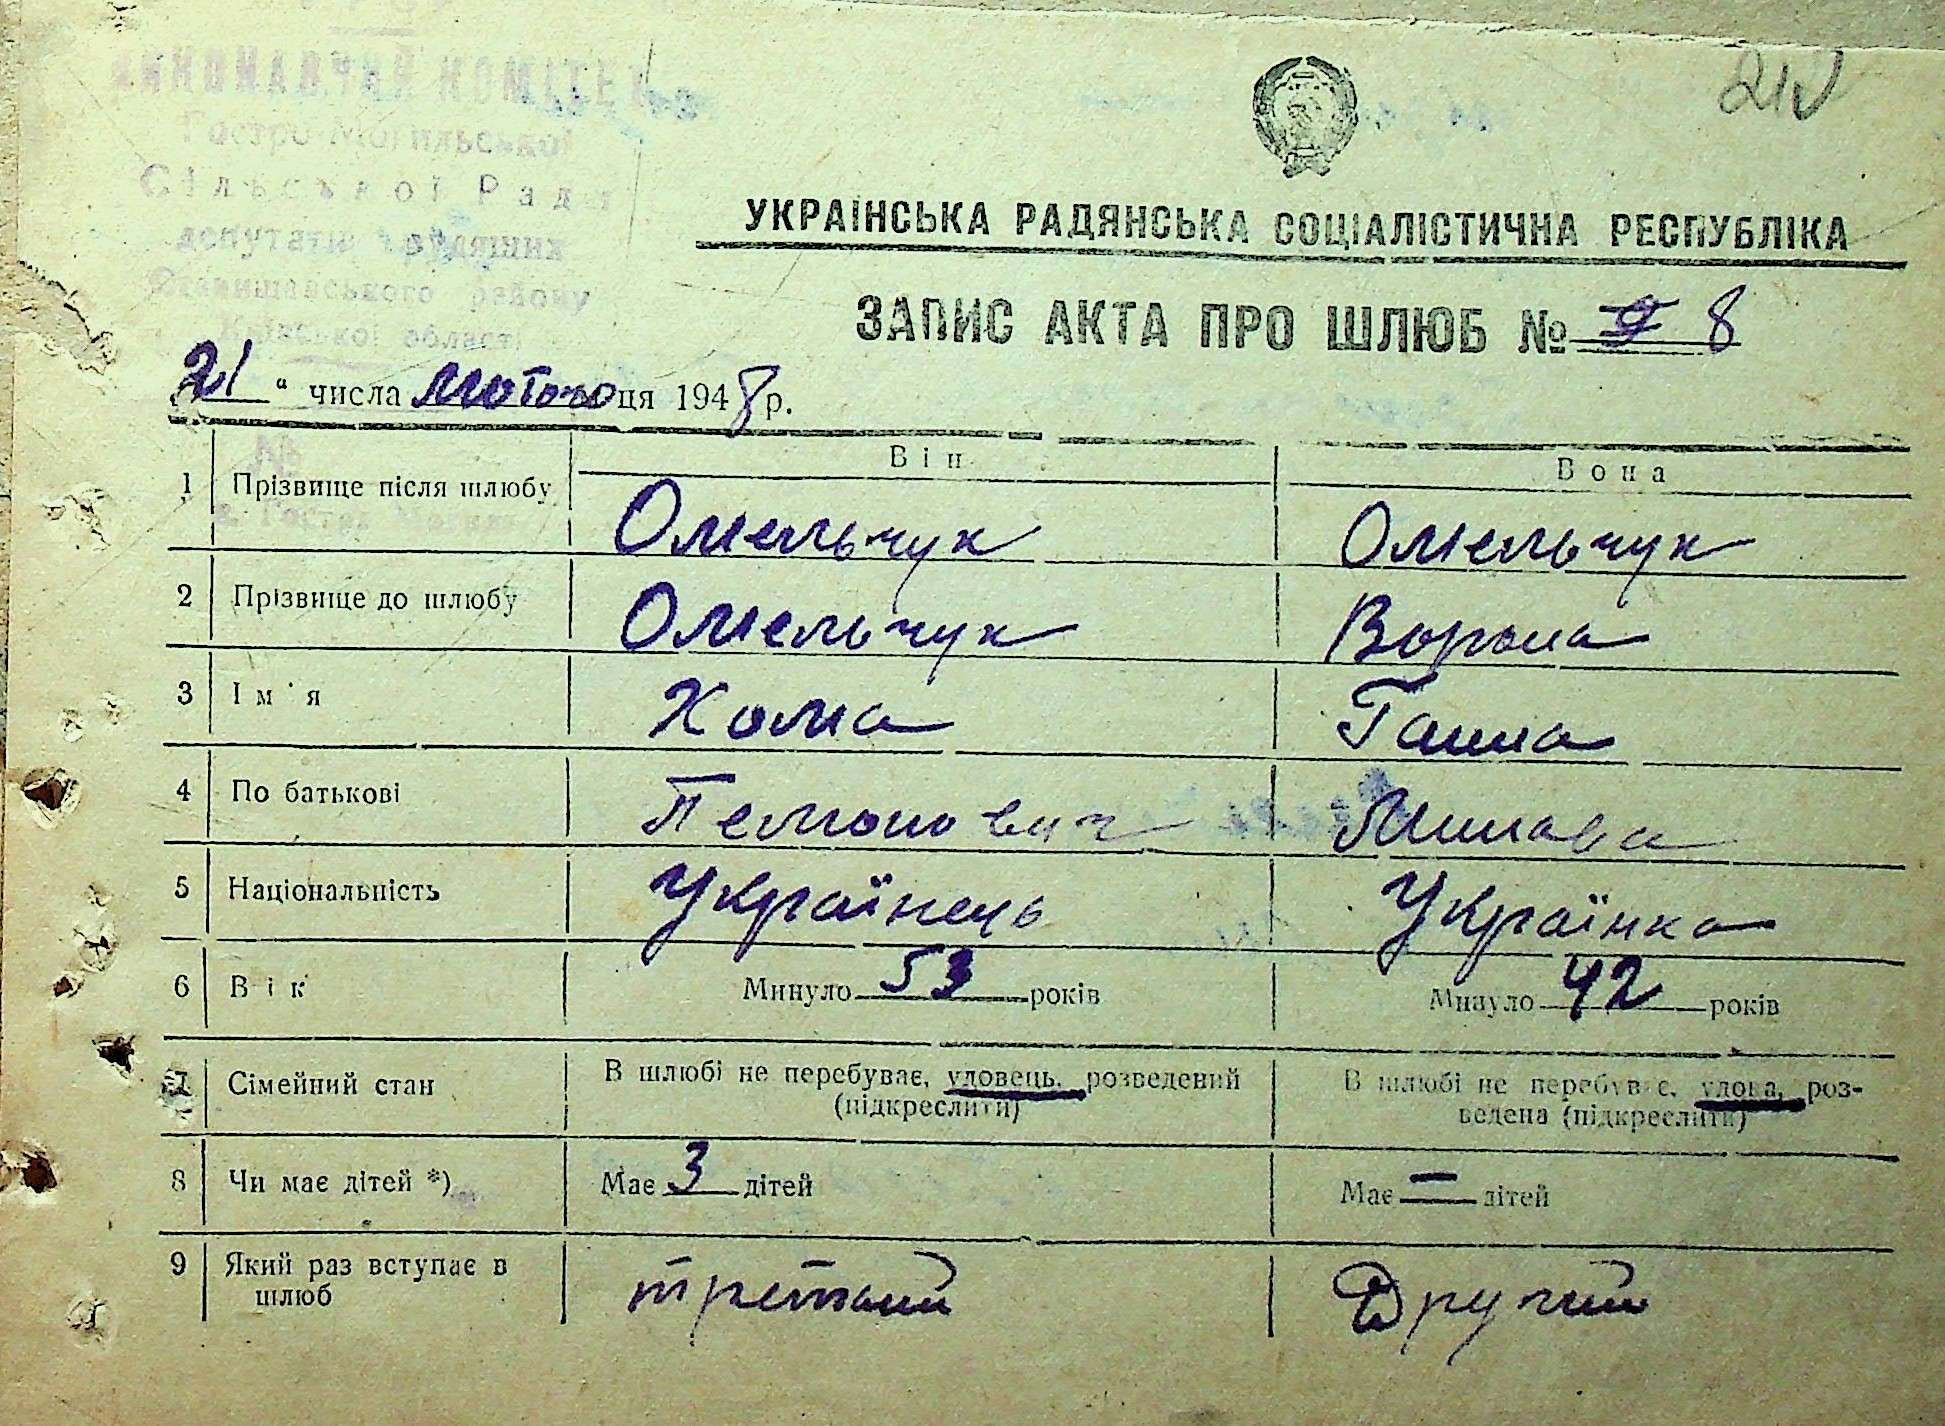 ВИКОНАВЧИЙ КОМІТЕТ
Гостро-Могильської
Сільської Ради
депутатів трудящих
Ставищанського району
Київської області
УКРАЇНСЬКА РАДЯНСЬКА СОЦІАЛІСТИЧНА РЕСПУБЛІКА
ЗАПИС АКТА ПРО ШЛЮБ № 8
21 " числа лютого ця 1948 р.
Він Вона
1 Прізвище після шлюбу Омельчук Омельчук
2 Прізвище до шлюбу Омельчук Ворона
3 Ім'я Хома Ганна
4 По батькові
5 Національність Українець Українка
6 Вік Минуло 53 років Минуло 42 років
7 Сімейний стан В шлюбі не перебуває, удовець, розведений (підкреслити) В шлюбі не перебуває, удова, роз-
ведена (підкреслити)
8 Чи має дітей *) Має 3 дітей Має — дітей
9 Який раз вступає в
шлюб третій Другий